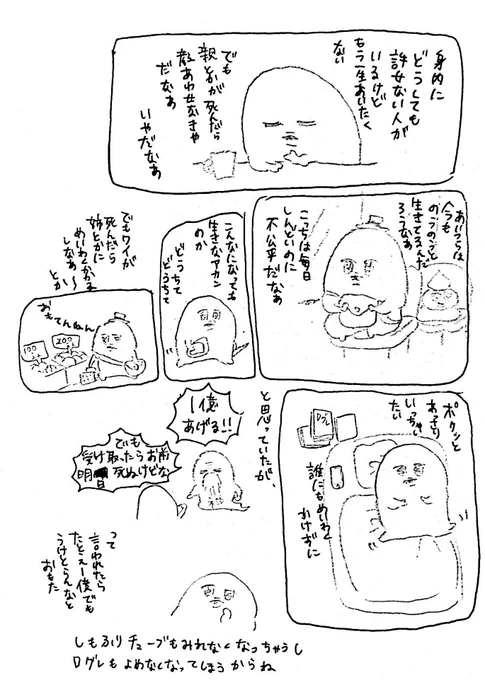 身内に
どうしても
許せない人が
いるけど
もう一生あいたく
ない
でも
親とかが死んだら
顔あわせなきゃ
だなぁ
いやだなぁ
あいつらは
今も
のうのうと
生きてるんだ
ろうなぁ
こっちは毎日
しんどいのに
不公平だなぁ
こんなになっても
生きなアカン
のか
どうちて
どうちて
でもワイが
死んだら
姉とかに
めいわくかかる
しなぁ〜
とか
おもてんねん
100
200
ポクッと
あっさり
いっちゃい
たい
ログレ
誰にもめいわく
かけずに
と思っていたが
1億
あげる!!
でも
受け取ったらお前
明日死ぬけどな
って
言われたら
たとえ一億でも
うけとらんなと
おもた
しもふりチューブもみれなくなっちゃうし
ログレもよめなくなってしまうからね